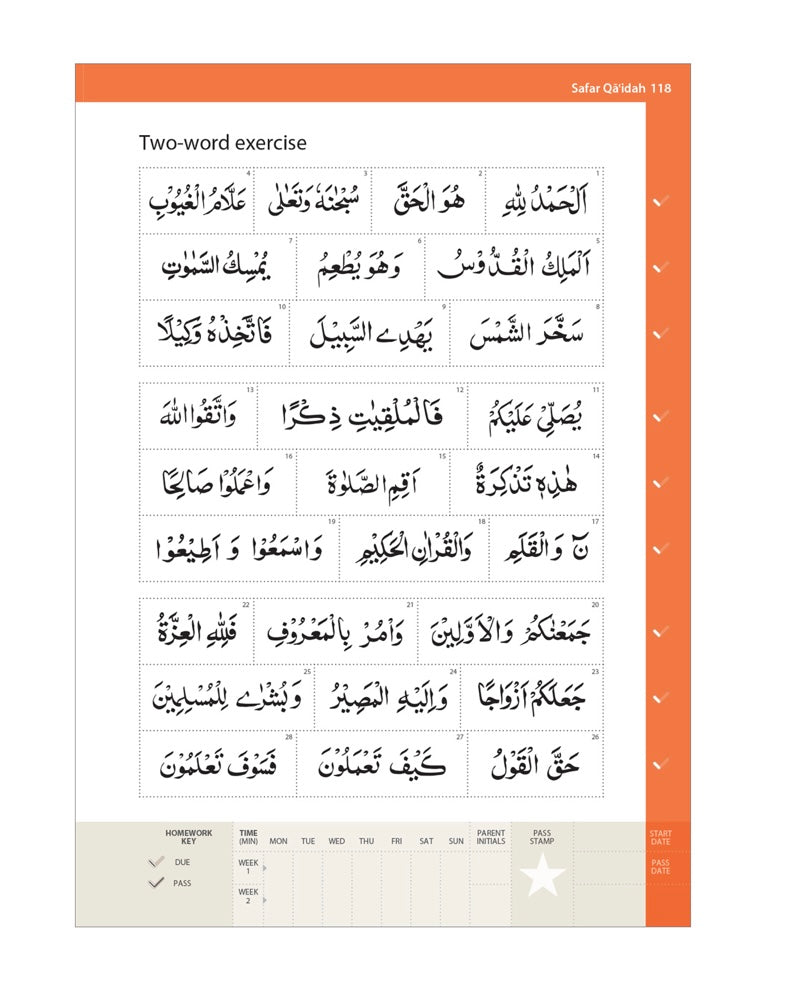 Safar Qā'idah 118
Two-word exercise
1 اَلْحَمْدُ لِلّٰهِ 2 هُوَ الْحَقَّ 3 سُبْحٰنَهٗ وَتَعَالٰى 4 عَلَّامُ الْغُيُوْبِ
5 اَلْمَلِكُ الْقُدُّوْسُ 6 وَهُوَ يُطْعِمُ 7 يُمْسِكُ السَّمٰوٰتِ
8 سَخَّرَ الشَّمْسَ 9 يَهْدِے السَّبِيْلَ 10 فَاتَّخِذْهُ وَكِيْلًا
11 يُصَلِّيْ عَلَيْكُمْ 12 فَالْمُلْقِيٰتِ ذِكْرًا 13 وَاتَّقُوا اللّٰهَ
14 هٰذِهٖ تَذْكِرَةٌ 15 اَقِمِ الصَّلٰوةَ 16 وَاعْمَلُوْا صَالِحًا
17 نٓ وَالْقَلَمِ 18 وَالْقُرْاٰنِ الْحَكِيْمِ 19 وَاسْمَعُوْا وَ اَطِيْعُوْا
20 جَمَعْنٰكُمْ وَالْاَوَّلِيْنَ 21 وَاْمُرْ بِالْمَعْرُوْفِ 22 فَلِلّٰهِ الْعِزَّةُ
23 جَعَلَكُمْ اَزْوَاجًا 24 وَاِلَيْهِ الْمَصِيْرُ 25 وَبُشْرٰے لِلْمُسْلِمِيْنَ
26 حَقَّ الْقَوْلُ 27 كَيْفَ تَعْمَلُوْنَ 28 فَسَوْفَ تَعْلَمُوْنَ
HOMEWORK KEY
DUE
PASS
TIME (MIN) MON TUE WED THU FRI SAT SUN PARENT INITIALS PASS STAMP START DATE
WEEK 1
WEEK 2
PASS DATE